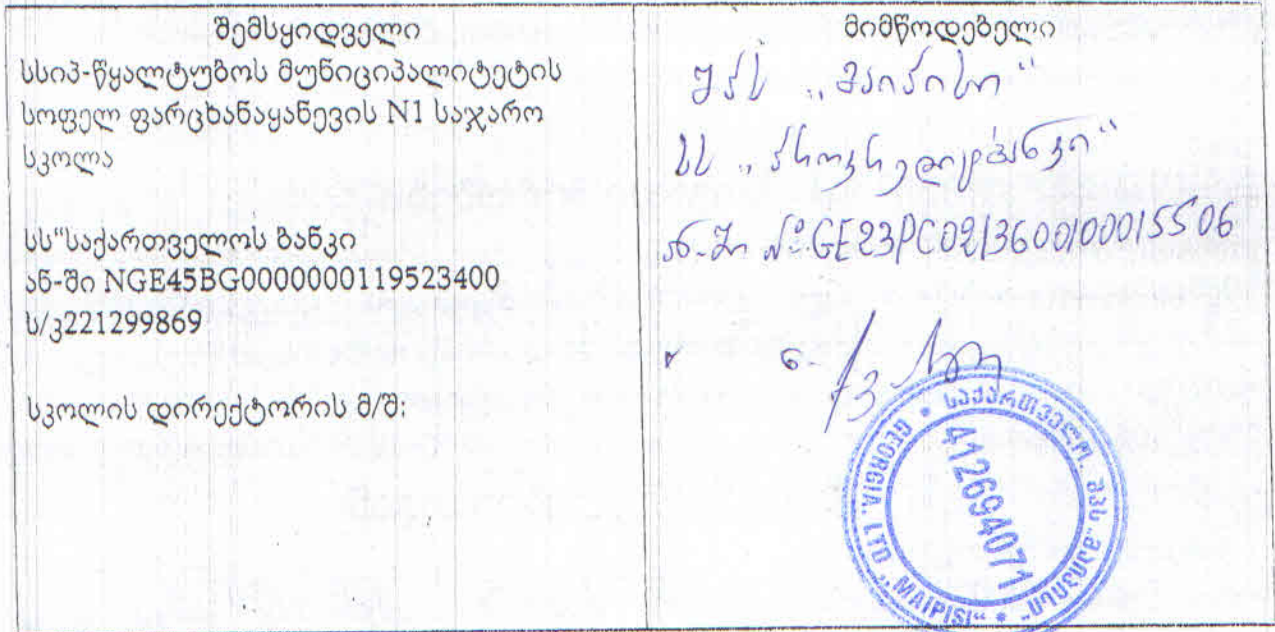 შემსყიდველი
სსიპ-წყალტუბოს მუნიციპალიტეტის
სოფელ ფარცხანაყანევის N1 საჯარო
სკოლა
სს"საქართველოს ბანკი
ან-ში NGE45BG0000000119523400
ს/კ221299869
სკოლის დირექტორის მ/შ:
მიმწოდებელი
შპს „მაიპისი“
სს „პროკრედიტბანკი“
ან-ში №GE23PC0213600100015506
საქართველო. შპს „მაიპისი“
GEORGIA. LTD "MAIPISI"
412694071